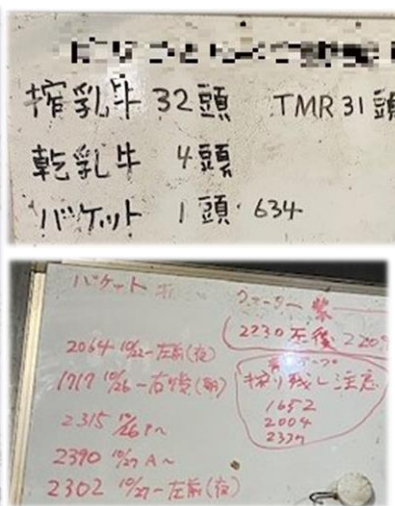 搾乳牛 32頭 TMR 31頭
乾乳牛 4頭
バケット 1頭 634
バケット 赤
クォーター 紫
2230 左後 2209
2064 10/22~左前(夜)
1717 10/26~右後(朝)
2315 10/26 P~
2390 10/27 A~
2302 10/27~左前(夜)
テープ
搾り残し注意
1652
2004
2337